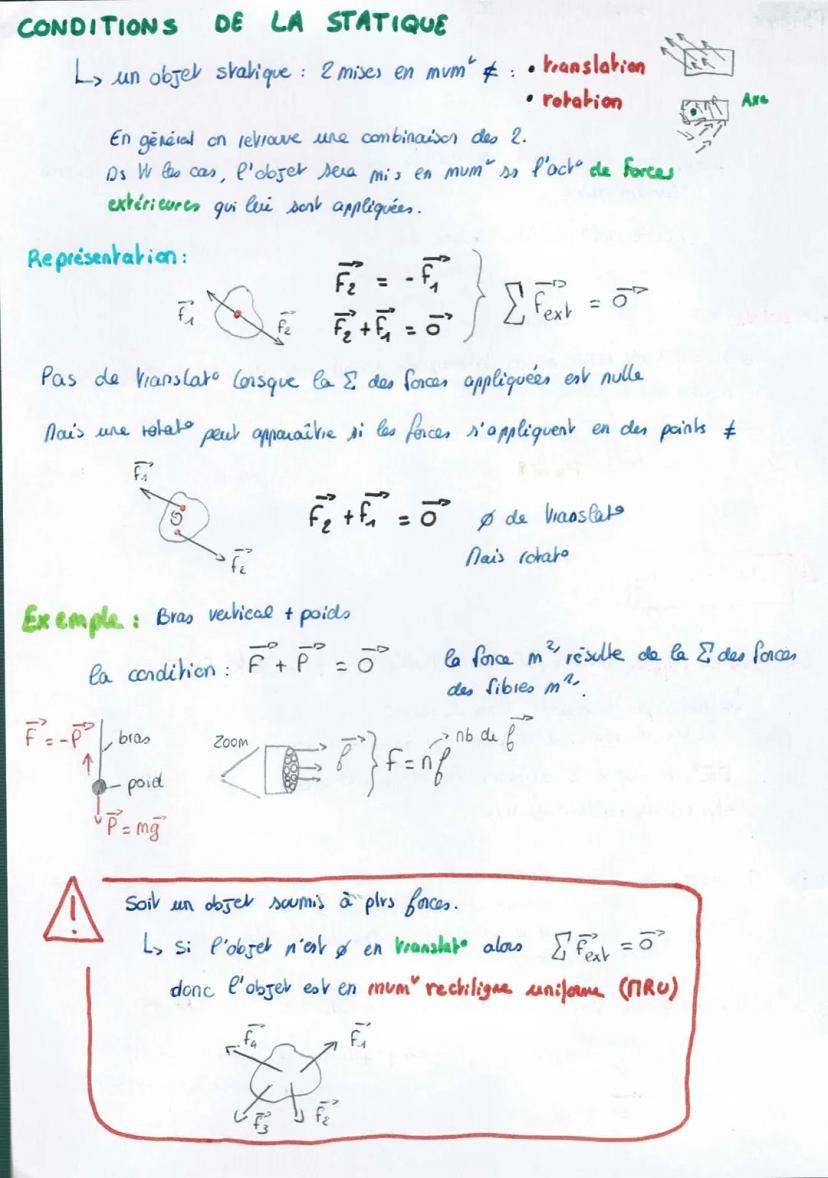 CONDITIONS DE LA STATIQUE
↳ un objet statique : 2 mises en mvmt ≠ : • translation
• rotation
Axe
En général on retrouve une combinaison des 2.
Ds tt les cas, l'objet sera mis en mvmt ss l'act° de forces
extérieures qui lui sont appliquées.
Représentation :
F₁ F₂
F₂ = - F₁
F₂ + F₁ = 0
∑ Fext = 0
Pas de translat° lorsque la Σ des forces appliquées est nulle
Mais une rotat° peut apparaître si les forces s'appliquent en des points ≠
F₁
F₂
F₂ + F₁ = 0 ∅ de translat°
Mais rotat°
Exemple : Bras vertical + poids
la condition : F + P = 0
la force mre résulte de la Σ des forces
des fibres mre.
F = -P bras
poid
P = mg
Zoom f } F = nf → nb de f
!
Soit un objet soumis à plrs forces.
↳ Si l'objet n'est ∅ en translat° alors ∑ Fext = 0
donc l'objet est en mvmt rectiligne uniforme (MRU)
F₄ F₁
F₃ F₂